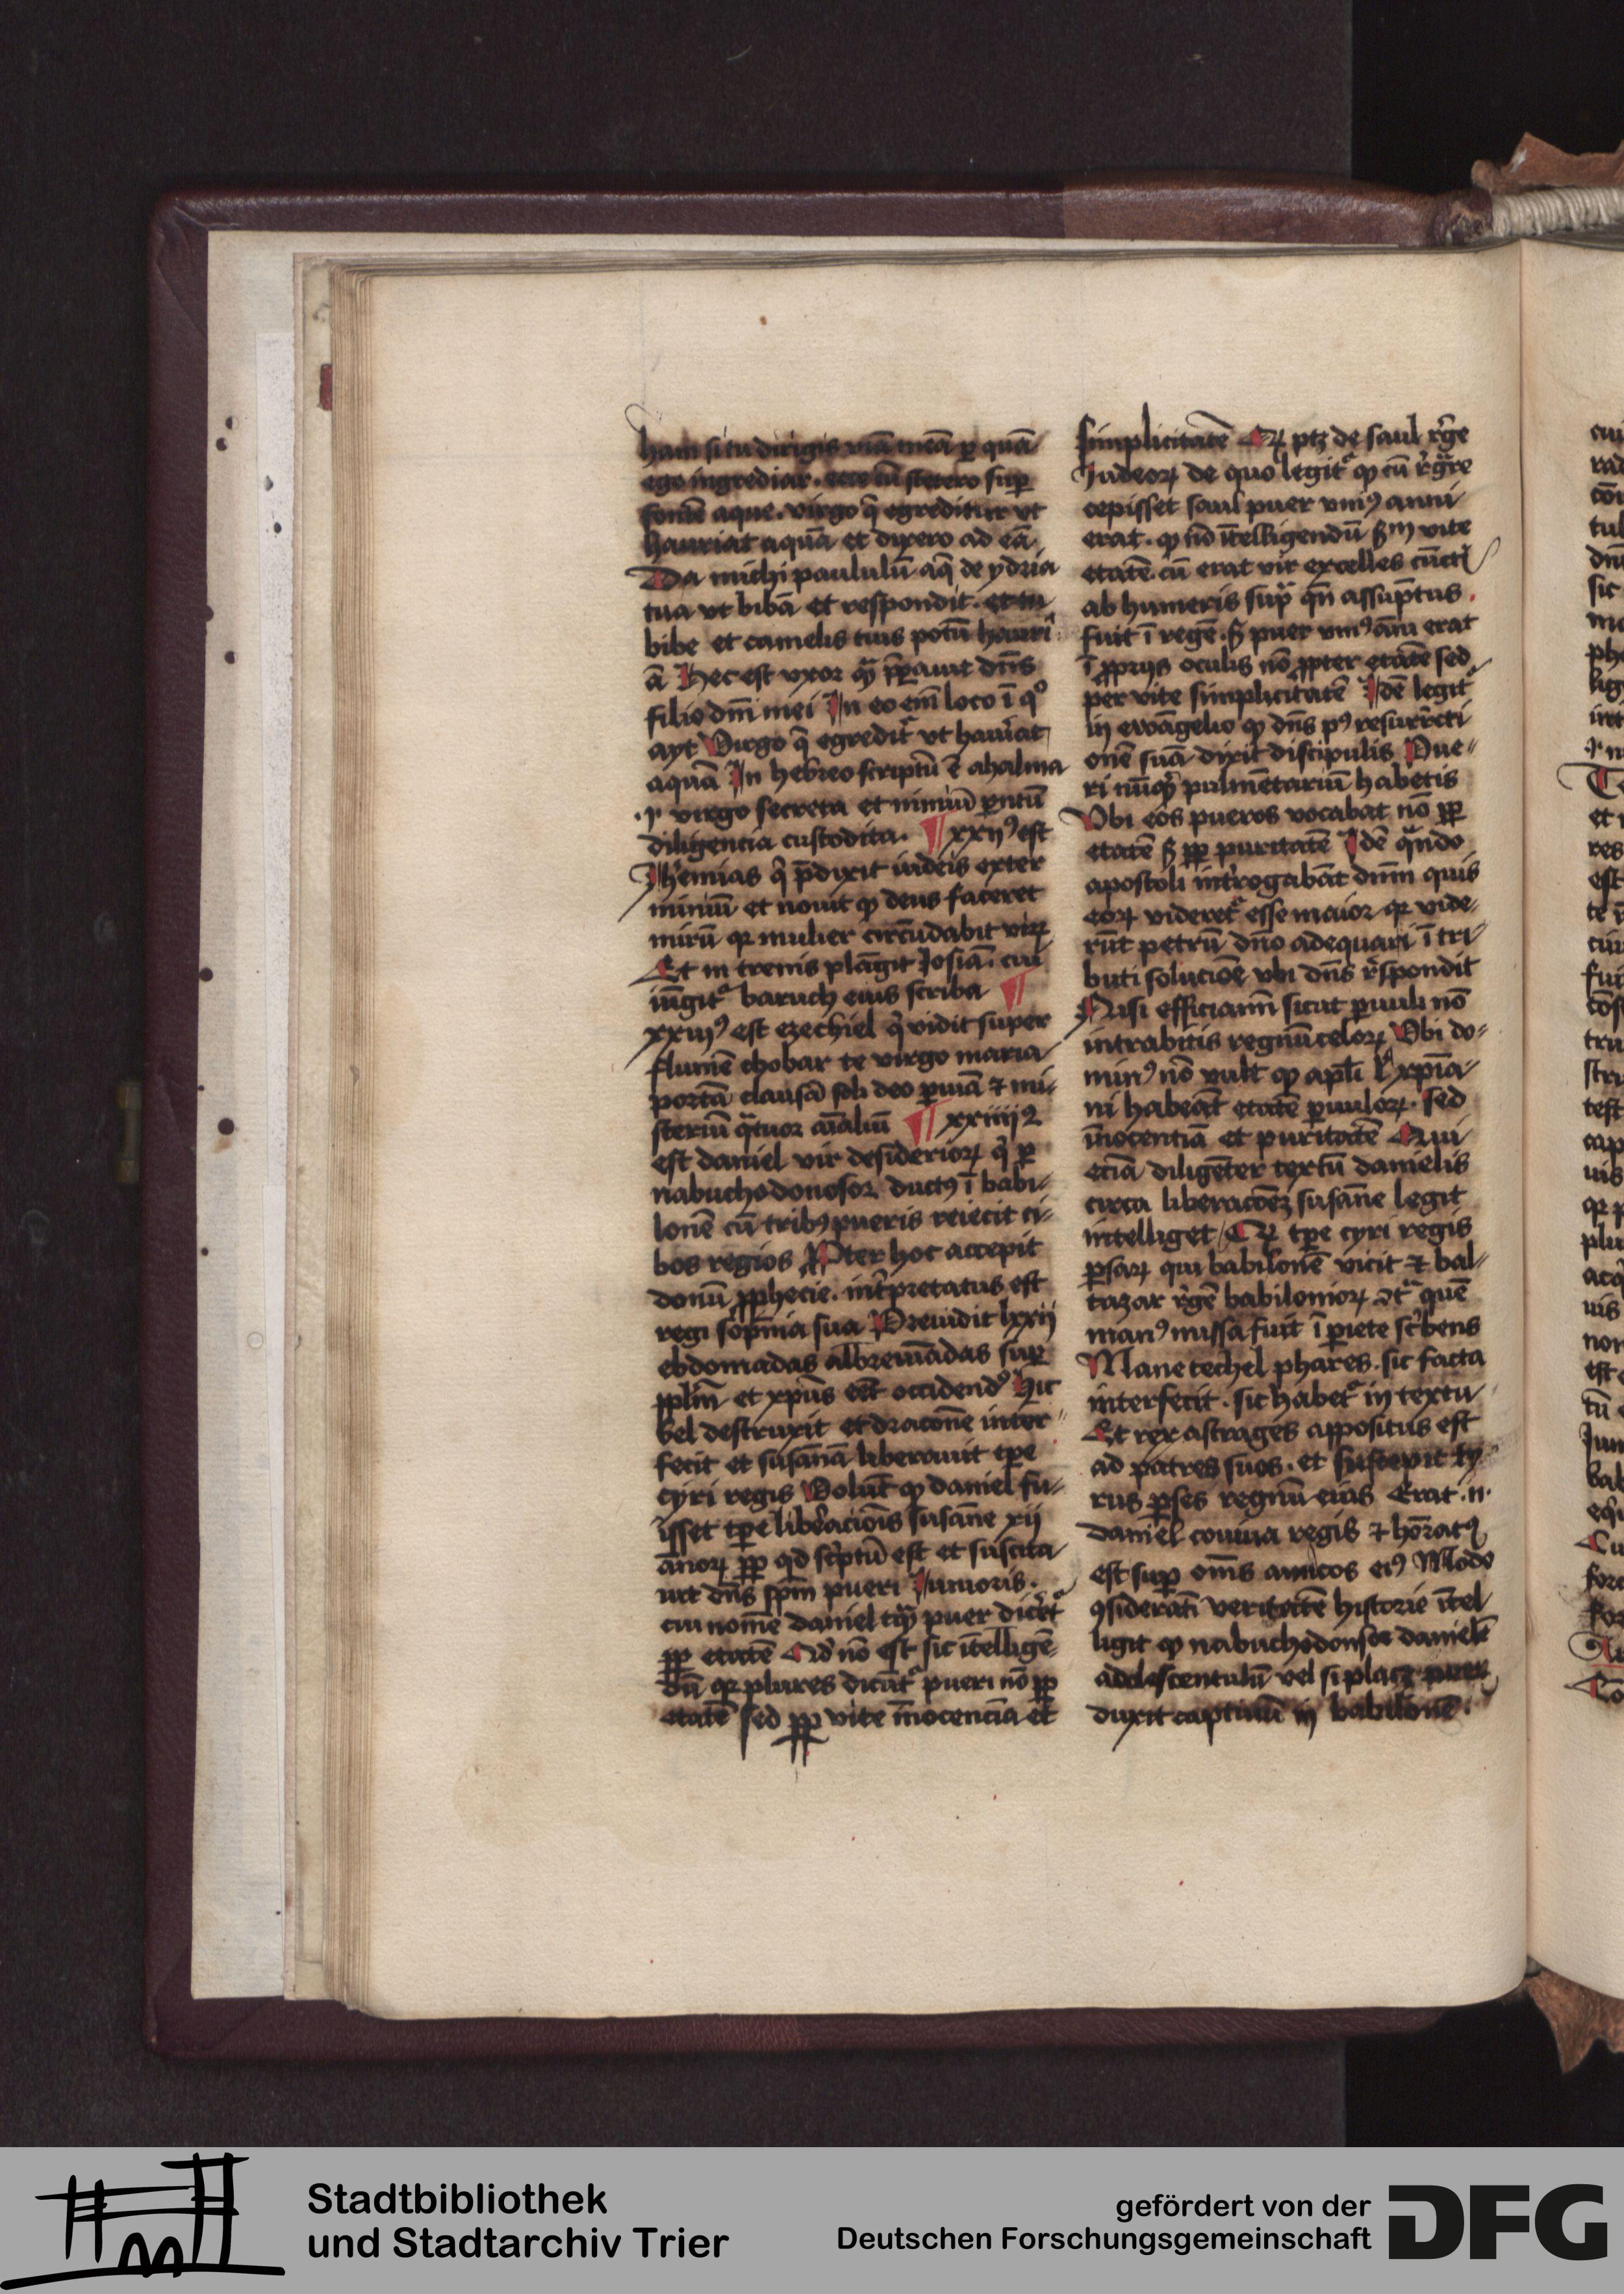 ham si tu dirigis viā meā ꝑ quā
ego ingrediar. ecce cū stetero suꝑ
fontē aque. virgo q̄ egreditur vt
hauriat aquā et dixero ad eā
Da michi paululū aq̄ de ydria
tua vt bibā et respondit. et tu
bibe et camelis tuis potū hauri
ā Hec est vxor quā p̄parauit dn̄s
filio dn̄i mei In eo em̄ loco ī qͦ
ayt Virgo q̄ egredit᷑ vt hauriat
aquā In hebreo scriptū ē ahalma
.i. virgo secreta et nimiū parentū
diligencia custodita. ¶ xxijꝰ est
Jheremias q̄ p̄dixit iudeis exter
miniū et nouit ꝙ deus faceret
mirū qꝛ mulier circūdabit virū
Et in trenis plāgit Josiā. cui
iūgit᷑ baruch eius scriba ¶
xxiijꝰ est ezechiel qͥ vidit super
flumē chobar te virgo maria
portā clausā soli deo ꝑuiā ⁊ mi-
steriū quatuor aīaliū ¶ xxiiij
est daniel vir desiderioꝝ qͥ ꝑ
nabuchodonosor ductꝰ ī babi-
lonē cū tribꝰ pueris reiecit ci-
bos regios ꝓpter hoc accepit
donū ꝓphecie. int̓pretatus est
regi sōpnia sua Preuidit lxxij
ebdomadas abbreuiadas suꝑ
pplm̄ et xpūs eēt occidendꝰ Hic
bel destruxit et draconē inter-
fecit et susannā liberauit tꝑe
cyri regis Volūt ꝙ daniel fu-
isset tꝑe liberacionis susanne xij
annoꝝ ꝓp qd̄ scriptū est et suscita
uit dn̄s spm̄ pueri Junioris.
cui nomē daniel tāquā puer dicer̄t᷑
ꝓp etatē Ad̓ nō est sic ītelligē-
dū qꝛ plures dicūt᷑ pueri nō ꝓp
etatē sed ꝓp vite īnocenciā et
simplicitatē Et ptꝫ de saul rege
Judeoꝝ de quo legit᷑ ꝙ cū regnare
cepisset saul puer vniꝰ anni
erat. ꝙ sīd ītelligendū scdm vite
etatē. cū erat vir excelles cūctis
ab humeris supra quando assūptus
fuit ī regē. sed puer vniꝰ anni erat
ī ꝓprijs oculis nō ꝓpter etatē sed
per vite simplicitatē Idē legit᷑
in ewāgelio ꝙ dn̄s pꝰ resurrecti
onē suā dixit discipulis Pue-
ri nūquid pulmētariū habetis
Vbi eos pueros vocabat nō ꝓp
etatē sed ꝓp puritatē Idē quando
apostoli int̓rogabāt dn̄m quis
eoꝝ videret᷑ esse maior qꝛ vide-
rūt petrū dn̄o adequari ī tri-
buti solucione vbi dn̄s respondit
Nisi efficiamini sicut paruuli nō
intrabitis regnū celoꝝ Vbi do-
minꝰ nō vult ꝙ apl̄i l̓ xpia-
ni habeāt etatē paruuloꝝ. sed
īnocentiā et puritatē Qui
etiā diligēter textū danielis
circa liberacōeꝫ susanne legit
intelliget Et tꝑe cyri regis
ꝑsaꝝ qui babilonē vicit ⁊ bal-
tazar regē babilonioꝝ quē
manꝰ missa fuit ī pariete scribens
Mane techel phares. sic facta
interfecit. sic habet᷑ in textu
Et rex astrages appositus est
ad patres suos. et suscepit cy
rus ꝑses regnū eius Erat .n.
daniel conuiua regis ⁊ honoratꝰ
est suꝑ om̄s amicos eiꝰ Modo
ꝯsiderati veritatē historie ītel
ligit ꝙ nabuchodonsor danielē
adolescentulū vel si placꝫ puer
duxit captiuū in babilonē.
Stadtbibliothek
und Stadtarchiv Trier
gefördert von der
Deutschen Forschungsgemeinschaft
DFG